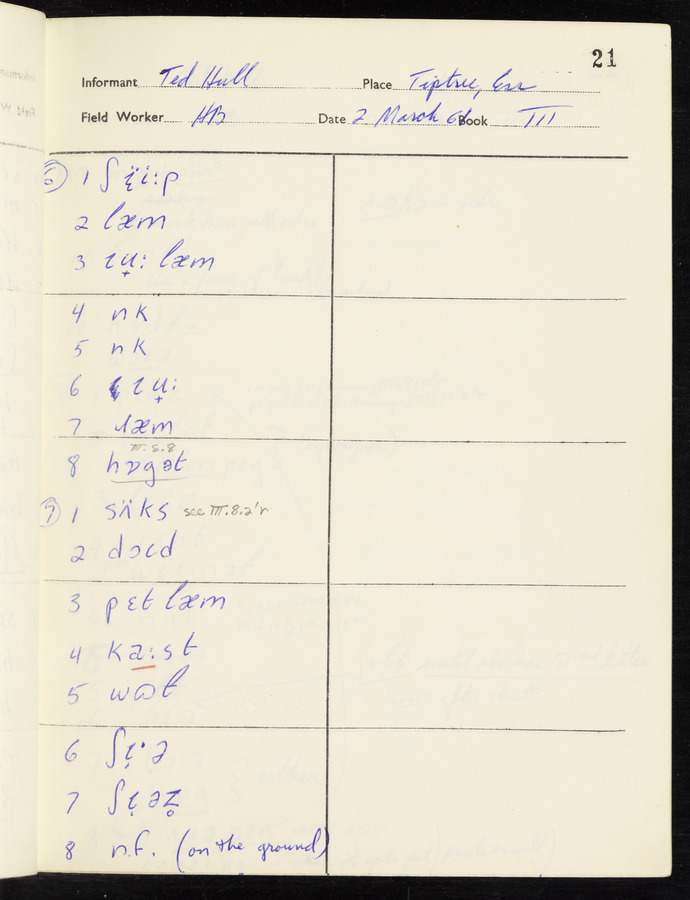 21
Informant Ted Hull Place Tiptree, Ess
Field Worker HB Date 2 March 66 Book III
⑥ 1 ʃɪ̞̈i:p
2 læm
3 ɹʉ̟: læm
4 nk
5 nk
6 ɹʉ̟:
7 ɹæm
III.6.8
8 hɒgət
⑦ 1 sʌ̈ks see III.8.2'r
2 dɔɹd
3 pɛt læm
4 ka:st
5 wɷt
6 ʃɪ̞·ə
7 ʃɪ̞əz̥
8 n.f. (on the ground)